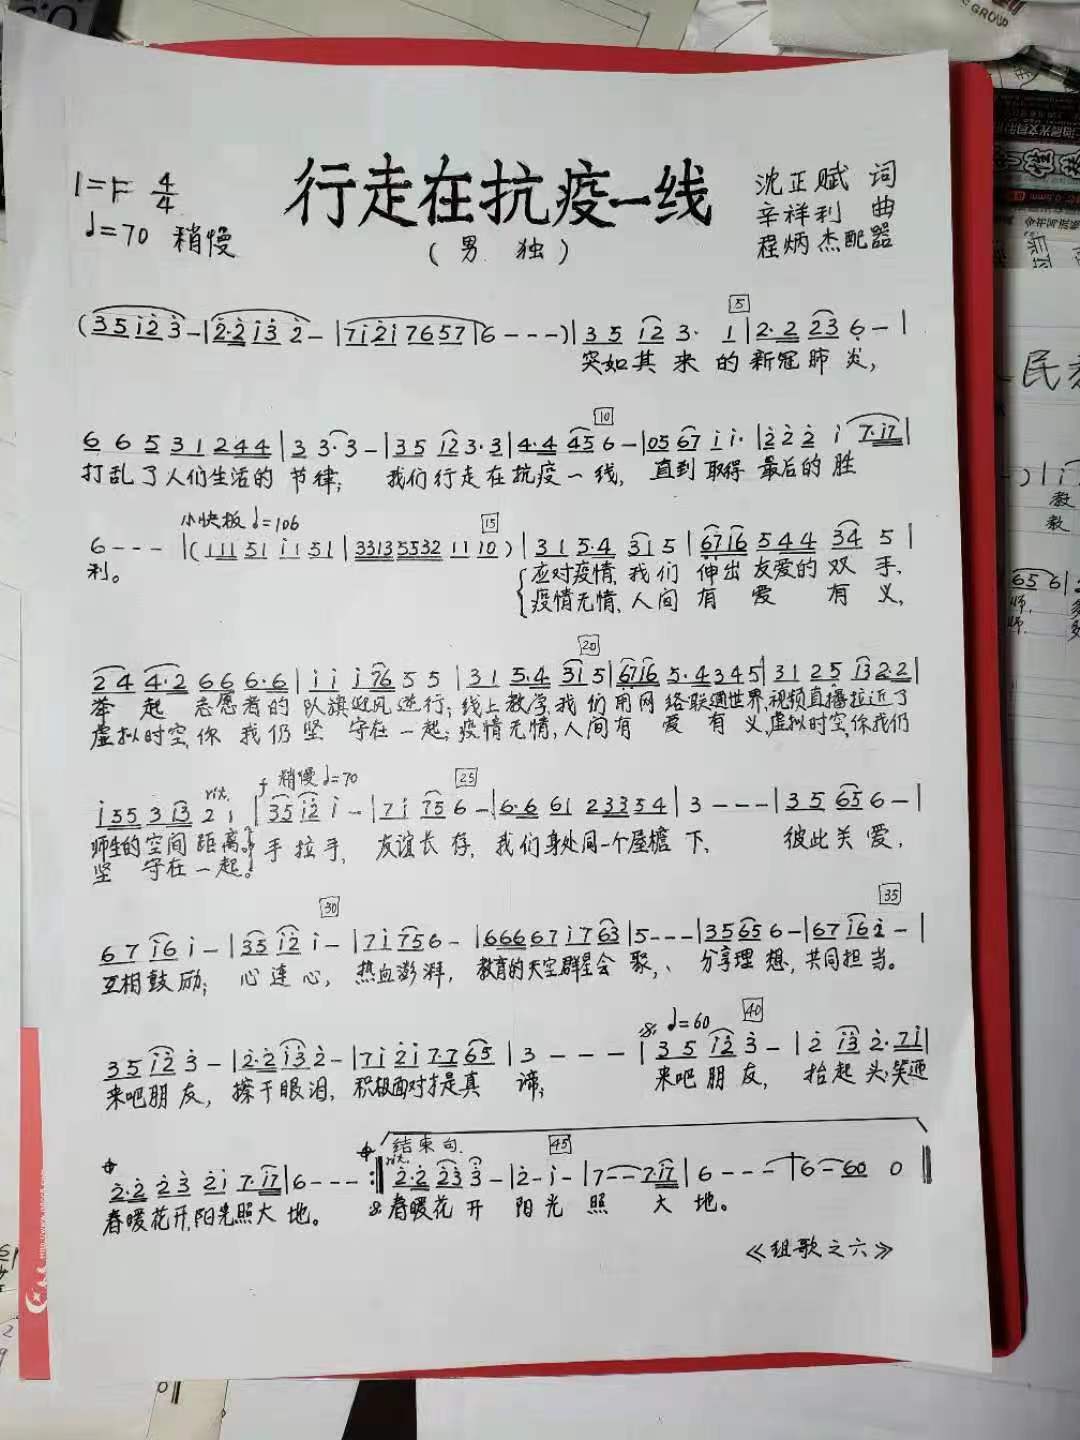 行走在抗疫一线
(男 独)
1=F 4/4
♩=70 稍慢
沈正赋 词
辛祥利 曲
程炳杰配器
5
(3 5 i 2 3 -|2·2 i 3 2 -|7 i 2 i 7 6 5 7|6 - - -)|3 5 i 2 3· 1|2·2 2 3 6 -|
突如其来的新冠肺炎,
10
6 6 5 3 1 2 4 4|3 3·3 -|3 5 i 2 3·3|4·4 4 5 6 -|0 5 6 7 i i·|2 2 2 i 7·i 7|
打乱了人们生活的节律; 我们行走在抗疫一线, 直到取得最后的胜
小快板 ♩=106
15
6 - - -|(1 1 1 5 1 i 1 5 1|3 3 1 3 5 5 3 2 1 1 1 0)|3 1 5·4 3 1 5|6 7 1 6 5 4 4 3 4 5|
利。
应对疫情,我们伸出友爱的双手,
疫情无情,人间有爱有义,
20
2 4 4·2 6 6 6 6·6|i i i 7 6 5 5|3 1 5·4 3 1 5|6 7 1 6 5·4 3 4 5|3 1 2 5 i 3 2·2|
举起志愿者的队旗迎风进行;线上教学,我们用网络联通世界,视频直播拉近了
虚拟时空,你我仍坚守在一起;疫情无情,人间有爱有义,虚拟时空,你我仍
rit.
f 稍慢 ♩=70
25
i 5 5 3 i 3 2 i|3 5 i 2 i -|7 i 7 5 6 -|6·6 6 1 2 3 3 5 4|3 - - -|3 5 6 5 6 -|
师生的空间距离。手拉手, 友谊长存, 我们身处同一个屋檐下, 彼此关爱,
坚守在一起。
30
35
6 7 i 6 i -|3 5 i 2 i -|7 i 7 5 6 -|6 6 6 6 7 i 7 6 3|5 - - -|3 5 6 5 6 -|6 7 i 6 2 -|
互相鼓励; 心连心, 热血澎湃, 教育的天空群星会聚, 分享理想,共同担当。
♩=60
40
3 5 i 2 3 -|2·2 i 3 2 -|7 i 2 i 7·7 6 5|3 - - -|3 5 i 2 3 -|2 i 3 2·7 i|
来吧朋友, 擦干眼泪, 积极面对才是真谛; 来吧朋友, 抬起头;笑迎
结束句.
rit.
45
2·2 2 3 2 i 7·i 7|6 - - -:‖2·2 2 3 3 -|2 - i -|7 - 7·i 7|6 - - -|6 - 6 0 0‖
春暖花开,阳光照大地。 春暖花开 阳光照大地。
《组歌之六》
民
教
教
6 5 6
师,
师.
GROUP